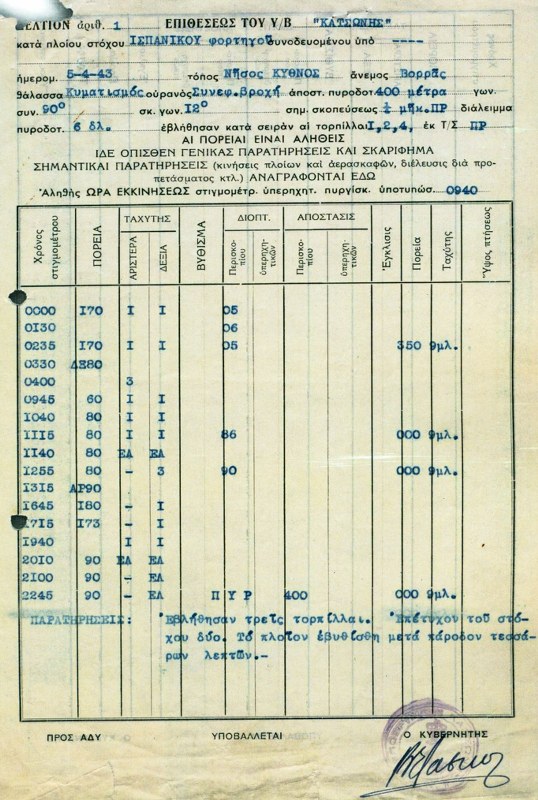 ΔΕΛΤΙΟΝ ἀριθ. 1 ΕΠΙΘΕΣΕΩΣ ΤΟΥ Υ/Β "ΚΑΤΣΩΝΗΣ"
κατά πλοίου στόχου ΙΣΠΑΝΙΚΟΥ φορτηγοῦ συνοδευομένου ὑπό ----
ἡμερομ. 5-4-43 τόπος Νῆσος ΚΥΘΝΟΣ ἄνεμος Βορρᾶς
θάλασσα Κυματισμός οὐρανός Συνεφ.βροχή ἀποστ. πυροδοτ. 400 μέτρα γων.
συν. 90° σκ. γων. Ι2° σημ. σκοπεύσεως ½ μῆκ.ΠΡ διάλειμμα
πυροδοτ. 6 δλ. ἐβλήθησαν κατά σειράν αἱ τορπίλλαι Ι,2,4, ἐκ Τ/Σ ΠΡ
ΑΙ ΠΟΡΕΙΑΙ ΕΙΝΑΙ ΑΛΗΘΕΙΣ
ΙΔΕ ΟΠΙΣΘΕΝ ΓΕΝΙΚΑΣ ΠΑΡΑΤΗΡΗΣΕΙΣ ΚΑΙ ΣΚΑΡΙΦΗΜΑ
ΣΗΜΑΝΤΙΚΑΙ ΠΑΡΑΤΗΡΗΣΕΙΣ (κινήσεις πλοίων καί ἀερασκαφῶν, διέλευσις διά προ-
πετάσματος κτλ.) ΑΝΑΓΡΑΦΟΝΤΑΙ ΕΔΩ
Ἀληθής ΩΡΑ ΕΚΚΙΝΗΣΕΩΣ στιγμομέτρ. ὑπερηχητ. πυργίσκ. ὑποτυπώσ. 0940
Χρόνος στιγμομέτρου ΠΟΡΕΙΑ ΤΑΧΥΤΗΣ ΑΡΙΣΤΕΡΑ ΔΕΞΙΑ ΒΥΘΙΣΜΑ ΔΙΟΠΤ. Περισκοπίου ὑπερηχητικῶν ΑΠΟΣΤΑΣΙΣ Περισκοπίου ὑπερηχητικῶν Ἔγκλισις Πορεία Ταχύτης Ὕψος πτήσεως
0000 Ι70 Ι Ι 05
0Ι30 06
0235 Ι70 Ι Ι 05 350 9μλ.
0330 ΔΕ80
0400 3
0945 60 Ι Ι
Ι040 80 Ι Ι
ΙΙΙ5 80 Ι Ι 86 000 9μλ.
ΙΙ40 80 ΕΛ ΕΛ
Ι255 80 - 3 90 000 9μλ.
Ι3Ι5 ΑΡ90
Ι645 Ι80 - Ι
Ι7Ι5 Ι73 - Ι
Ι940 Ι Ι
20Ι0 90 ΕΛ ΕΛ
2Ι00 90 - ΕΛ
2245 90 - ΕΛ Π Υ Ρ 400 000 9μλ.
ΠΑΡΑΤΗΡΗΣΕΙΣ: Ἐβλήθησαν τρεῖς τορπίλλαι. Ἐπέτυχον τοῦ στό-
χου δύο. Τό πλοῖον ἐβυθίσθη μετά πάροδον τεσσά-
ρων λεπτῶν.-
ΠΡΟΣ ΑΔΥ ΥΠΟΒΑΛΛΕΤΑΙ Ο ΚΥΒΕΡΝΗΤΗΣ